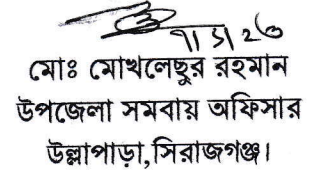 মোঃ মোখলেছুর রহমান
উপজেলা সমবায় অফিসার
উল্লাপাড়া,সিরাজগঞ্জ।